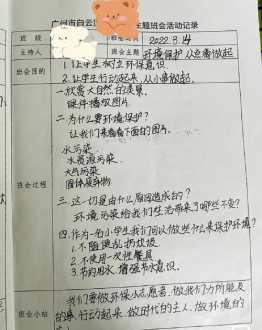 广州市白云 主题班会活动记录
班级 2022.3.14
主持人 班会主题 环境保护 从自我做起
班会目的 1.让学生树立环保意识
2.让学生行动起来,从小事做起。
班会过程
一.欣赏大自然的美景.
课件播放图片
二.为什么要环境保护?
让我们来看看下面的图片.
水污染
水资源污染
大气污染
固体废弃物
三.这一切是由什么原因造成的?
环境污染给我们生活带来了哪些不变?
四.作为一名小学生我们可以做些什么来保护环境?
1.不随便乱扔垃圾
2.不使用一次性餐具
3.节约用水 增强节水意识.
班会小结 我们要做环保小志愿者,做我们力所能及
的事 行动起来 做时代的主人,做环境的